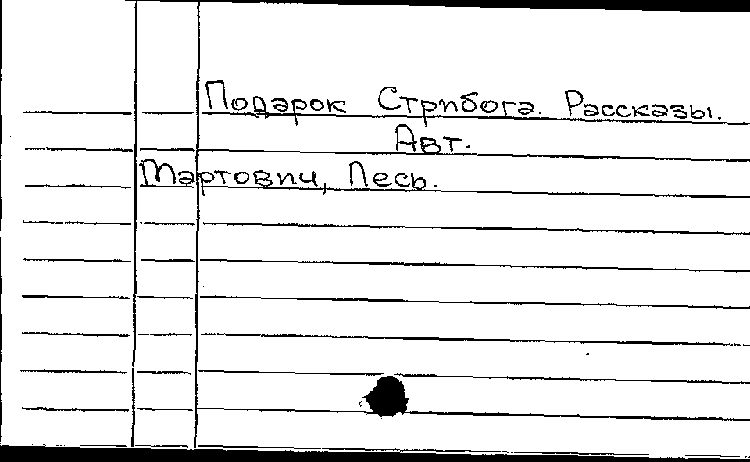 Подарок Стрибога. Рассказы.
Авт.
Мартович, Лесь.